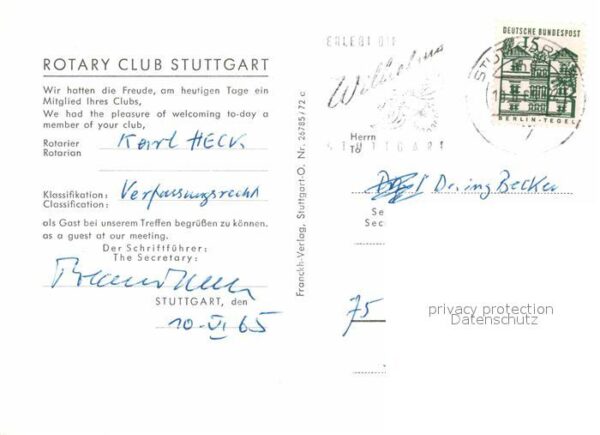 ROTARY CLUB STUTTGART
Wir hatten die Freude, am heutigen Tage ein
Mitglied Ihres Clubs,
We had the pleasure of welcoming to-day a
member of your club,
Rotarier Karl HECK
Rotarian
Klassifikation: Verfassungsrecht
Classification:
als Gast bei unserem Treffen begrüßen zu können.
as a guest at our meeting.
Der Schriftführer:
The Secretary:
STUTTGART, den
10-VI 65
Franckh-Verlag, Stuttgart-O. Nr. 26785/72 c
ERLEBT DIE
Wilhelma
STUTTGART
DEUTSCHE BUNDESPOST
15
BERLIN-TEGEL
Herrn
To
Dr.ing Becker
Se
Sec
75
privacy protection
Datenschutz